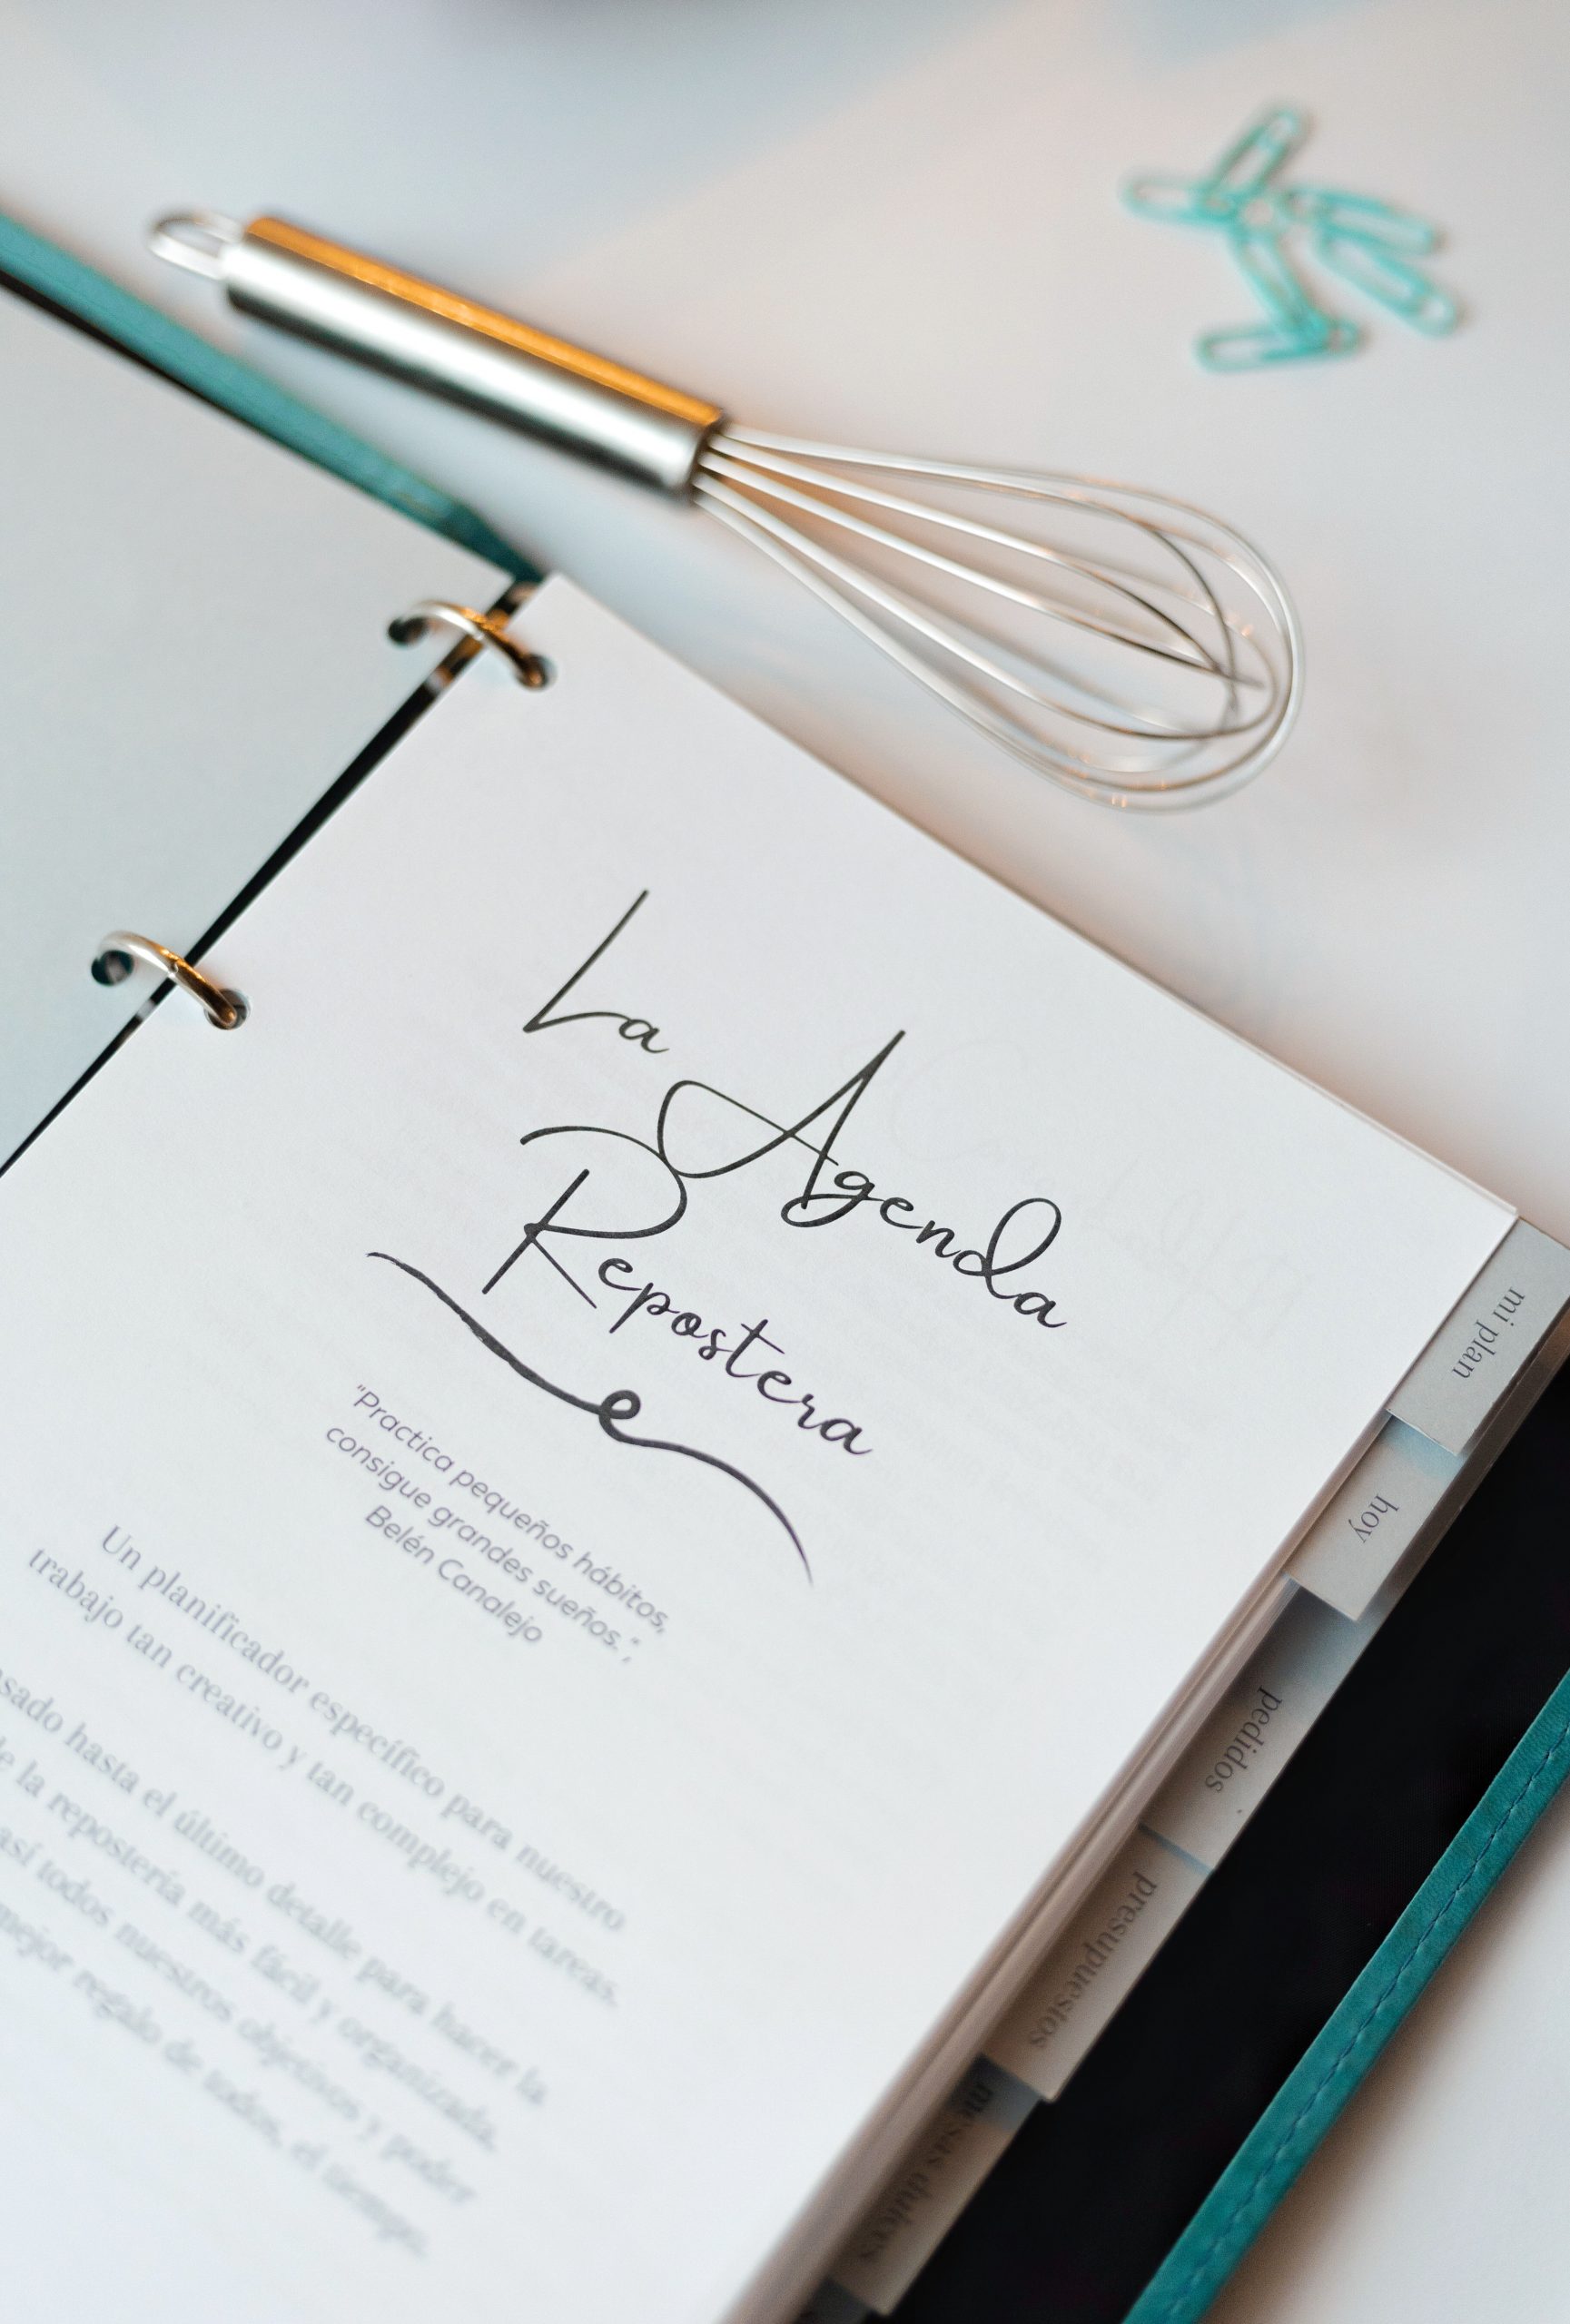 La
Agenda
Repostera
"Practica pequeños hábitos,
consigue grandes sueños.",
Belén Canalejo
Un planificador específico para nuestro
trabajo tan creativo y tan complejo en tareas.
sado hasta el último detalle para hacer la
de la repostería más fácil y organizada,
así todos nuestros objetivos y poder
mejor regalo de todos, el tiempo.
mi plan
hoy
pedidos
presupuestos
mesas dulces